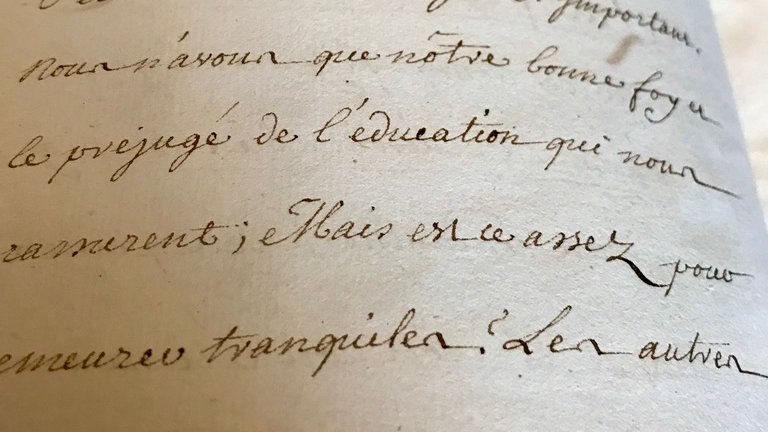 important.
nous n'avons que nôtre bonne foy et
le préjugé de l'éducation qui nous
rassurent; Mais est ce assez pour
emeurer tranquiles? Les autres